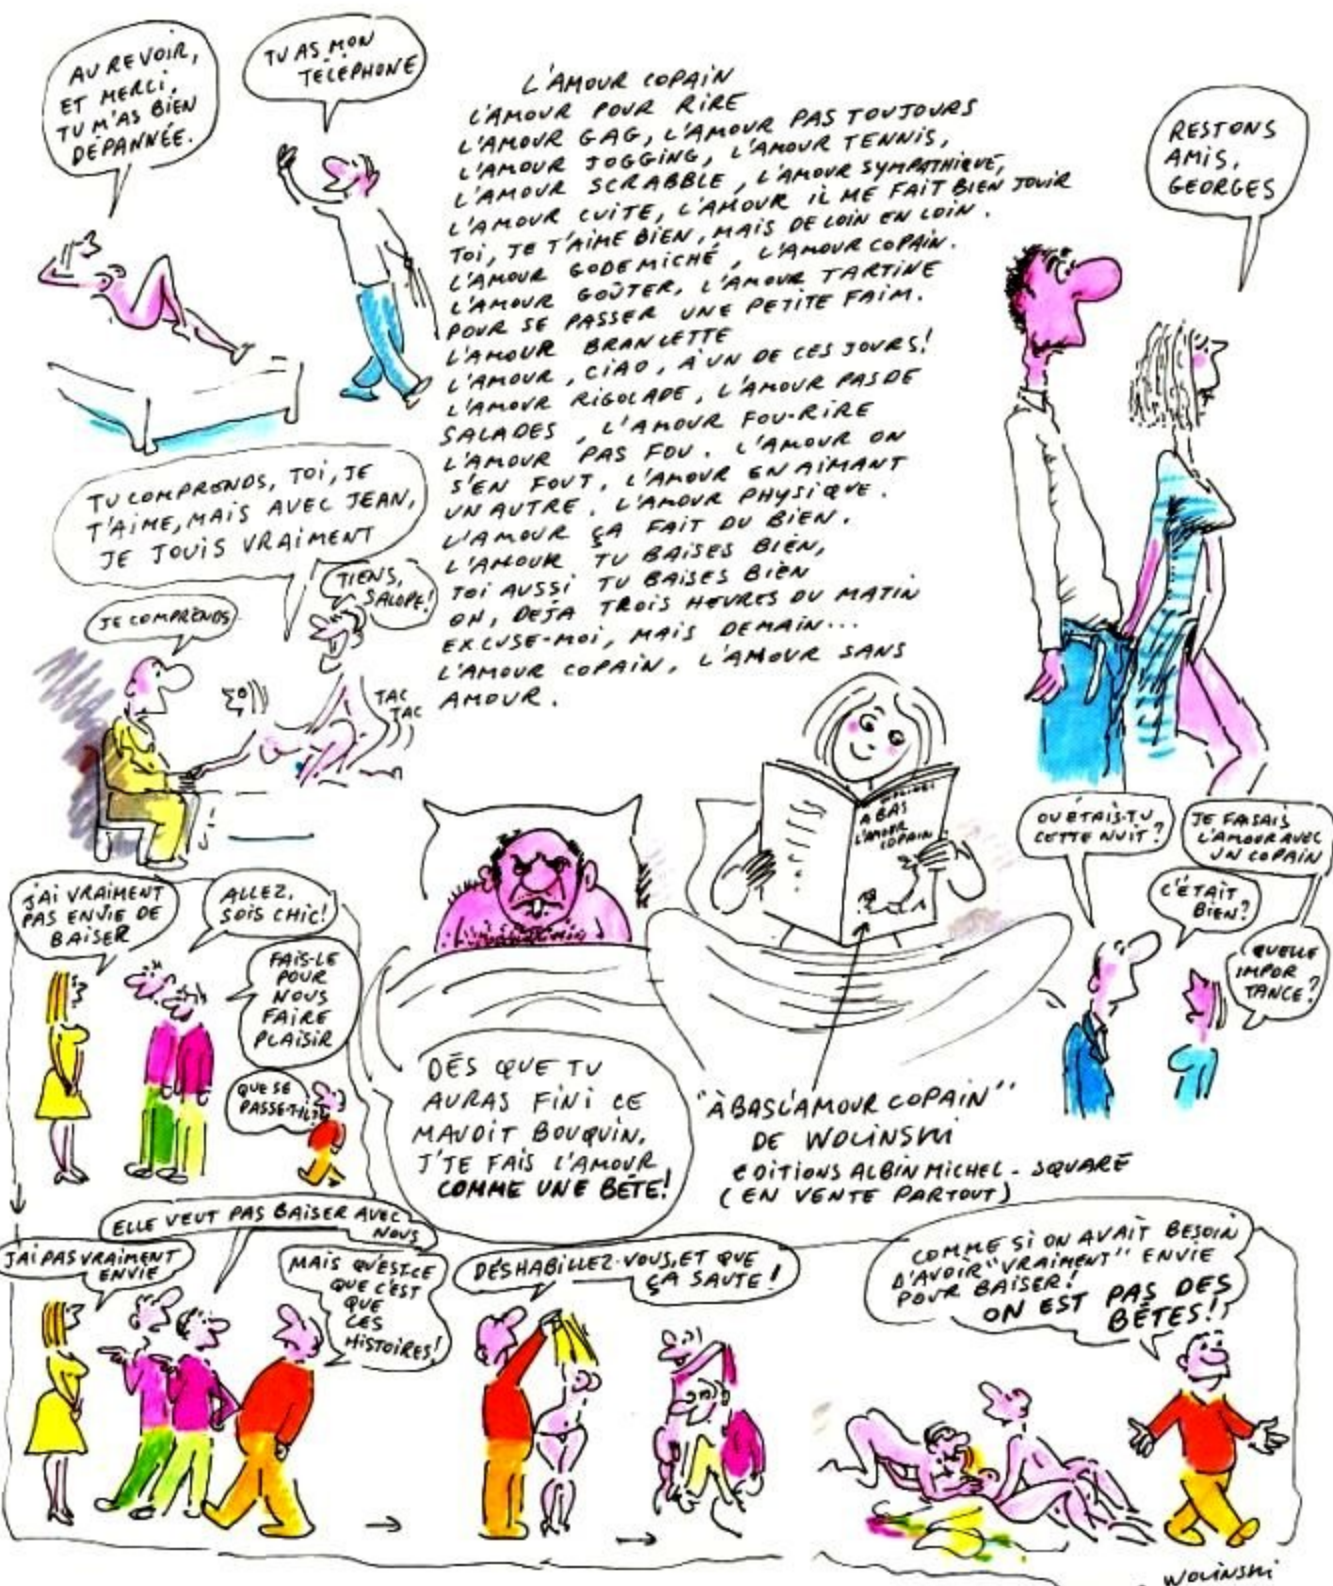 AU REVOIR,
ET MERCI,
TU M'AS BIEN
DÉPANNÉE.
TU AS MON
TÉLÉPHONE
L'AMOUR COPAIN
L'AMOUR POUR RIRE
L'AMOUR GAG, L'AMOUR PAS TOUJOURS
L'AMOUR JOGGING, L'AMOUR TENNIS,
L'AMOUR SCRABBLE, L'AMOUR SYMPATHIQUE,
L'AMOUR CUITE, L'AMOUR IL ME FAIT BIEN JOUIR
TOI, JE T'AIME BIEN, MAIS DE LOIN EN LOIN.
L'AMOUR GODEMICHÉ, L'AMOUR COPAIN.
L'AMOUR GOÛTER, L'AMOUR TARTINE
POUR SE PASSER UNE PETITE FAIM.
L'AMOUR BRANLETTE
L'AMOUR, CIAO, À UN DE CES JOURS!
L'AMOUR RIGOLADE, L'AMOUR PAS DE
SALADES, L'AMOUR FOU-RIRE
L'AMOUR PAS FOU. L'AMOUR ON
S'EN FOUT, L'AMOUR EN AIMANT
UN AUTRE. L'AMOUR PHYSIQUE.
L'AMOUR ÇA FAIT DU BIEN.
L'AMOUR TU BAISES BIEN,
TOI AUSSI TU BAISES BIEN
OH, DEJA TROIS HEURES DU MATIN
EXCUSE-MOI, MAIS DEMAIN...
L'AMOUR COPAIN, L'AMOUR SANS
AMOUR.
RESTONS
AMIS,
GEORGES
TU COMPRENDS, TOI, JE
T'AIME, MAIS AVEC JEAN,
JE JOUIS VRAIMENT
JE COMPRENDS
TIENS,
SALOPE!
TAC
TAC
WOLINSKI
A BAS
L'AMOUR
COPAIN
OU ÉTAIS-TU
CETTE NUIT?
JE FAISAIS
L'AMOUR AVEC
UN COPAIN
C'ÉTAIT
BIEN?
QUELLE
IMPOR
TANCE?
J'AI VRAIMENT
PAS ENVIE DE
BAISER
ALLEZ,
SOIS CHIC!
FAIS-LE
POUR
NOUS
FAIRE
PLAISIR
QUE SE
PASSE-T-IL?
DÉS QUE TU
AURAS FINI CE
MAUDIT BOUQUIN,
J'TE FAIS L'AMOUR
COMME UNE BÊTE!
"À BAS L'AMOUR COPAIN"
DE WOLINSKI
EDITIONS ALBIN MICHEL - SQUARE
(EN VENTE PARTOUT)
J'AI PAS VRAIMENT
ENVIE
ELLE VEUT PAS BAISER AVEC
NOUS
MAIS QU'EST-CE
QUE C'EST
QUE
CES
HISTOIRES!
DÉSHABILLEZ-VOUS, ET QUE
ÇA SAUTE!
COMME SI ON AVAIT BESOIN
D'AVOIR "VRAIMENT" ENVIE
POUR BAISER!
ON EST PAS DES
BÊTES!
WOLINSKI